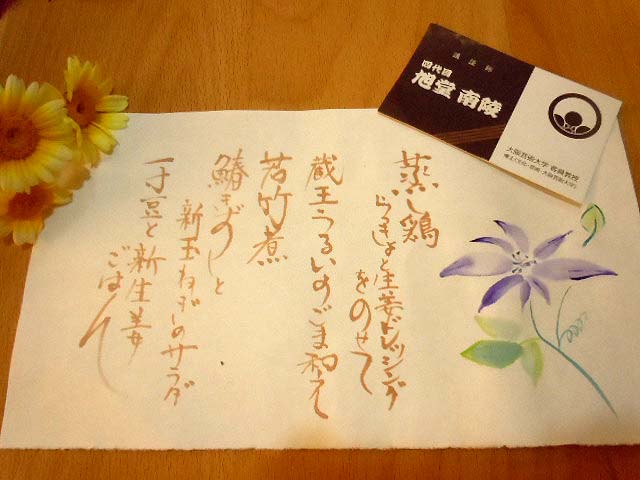 蒸し鶏
らっきょと生姜ドレッシング
をのせて
蔵王うるいのごま和え
若竹煮
鰆きずしと
新玉ねぎのサラダ
一寸豆と新生姜
ごはん
講談師
四代目
旭堂 南陵
大阪芸術大学 客員教授